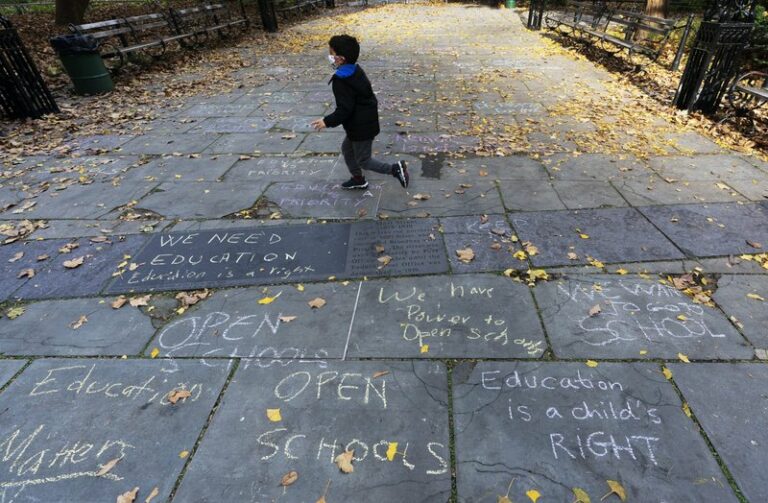 PRIORITY
PRIORITY
WE NEED
EDUCATION
Education is a right
OPEN
SCHOOLS
We have
Power to
Open schools
WE WANT
To Go to
SCHOOL
Education
Matters
OPEN
SCHOOLS
Education
is a child's
RIGHT